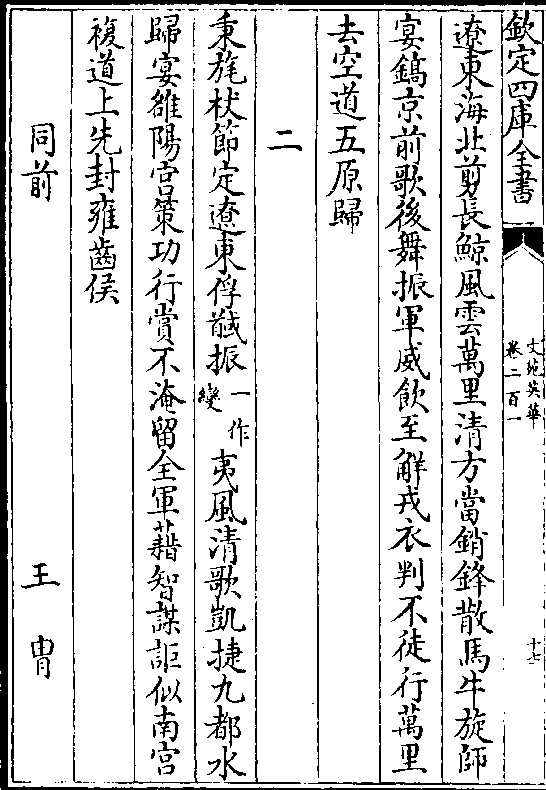 欽定四庫全書
文苑英華
卷二百一
十七
遼東海北剪長鯨風雲萬里清方當銷鋒散馬牛旋師
宴鎬京前歌後舞振軍威飲至解戎衣判不徒行萬里
去空道五原歸
二
秉旄杖節定遼東俘馘振一作變夷風清歌凱捷九都水
歸宴雒陽宫策功行賞不淹留全軍藉智謀詎似南宫
複道上先封雍齒侯
同前 王胄